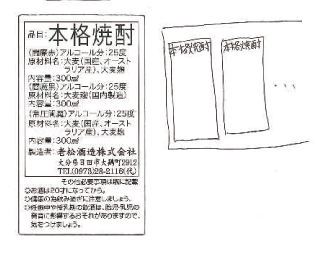 品目: 本格焼酎
アルコール分:25度
原材料名:大麦(国産、オースト
ラリア産)、大麦麹
内容量:300㎖
アルコール分:25度
原材料名:大麦、大麦麹(国内製造)
内容量:300㎖
(常圧 アルコール分:25度
原材料名:大麦(国産、オースト
ラリア産)、大麦麹
内容量:300㎖
製造者: 老松酒造株式会社
大分県日田市大鶴町2912
TEL(0973)28-2116(代)
その他必要事項は別に記載
○お酒は20才になってから。
○ 飲み過ぎに注意しましょう。
○妊娠中や授乳期の飲酒は、胎児・乳児の
発育に影響するおそれがありますので、
気をつけましょう。
本格焼酎 本格焼酎